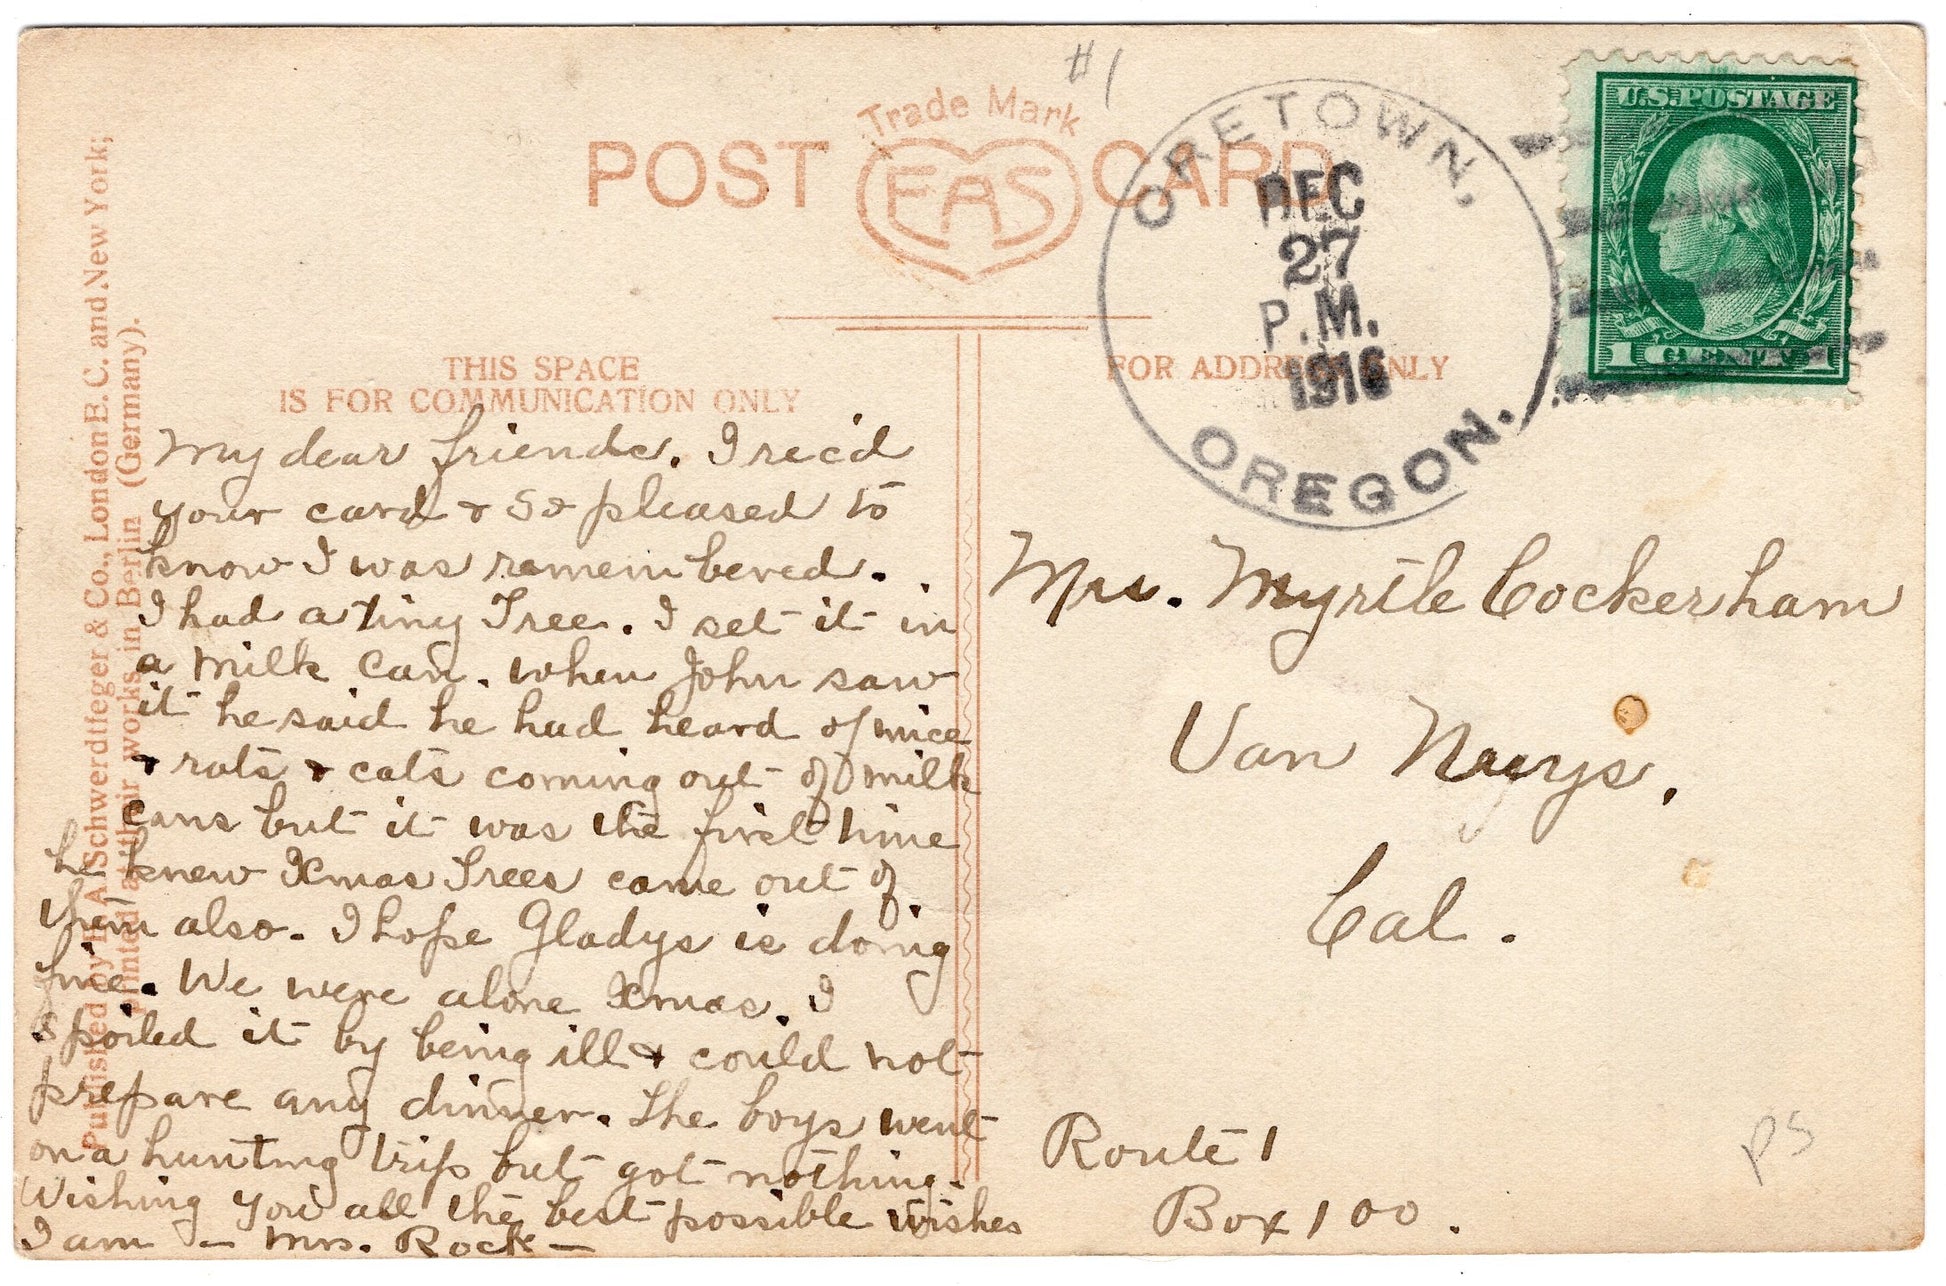 #1
Trade Mark
POST EAS CARD
ORETOWN,
DEC
27
P.M.
1916
OREGON.
U.S. POSTAGE
1 CENT 1
THIS SPACE
IS FOR COMMUNICATION ONLY
FOR ADDRESS ONLY
My dear friends. I rec'd
your card & so pleased to
know I was remembered.
I had a tiny Tree. I set it in
a milk can. when John saw
it he said he had heard of mice
& rats & cats coming out of milk
cans but it was the first time
he knew Xmas Trees came out of
them also. I hope Gladys is doing
fine. We were alone Xmas. I
spoiled it by being ill & could not
prepare any dinner. The boys went
on a hunting trip but got nothing.
Wishing you all the best possible wishes
I am — Mrs. Rock —
Mrs. Myrtle Cockerham
Van Nuys.
Cal.
Route 1
Box 100.
PS
Published by E. A. Schwerdtfeger & Co., London E. C. and New York;
printed at their works in Berlin (Germany).